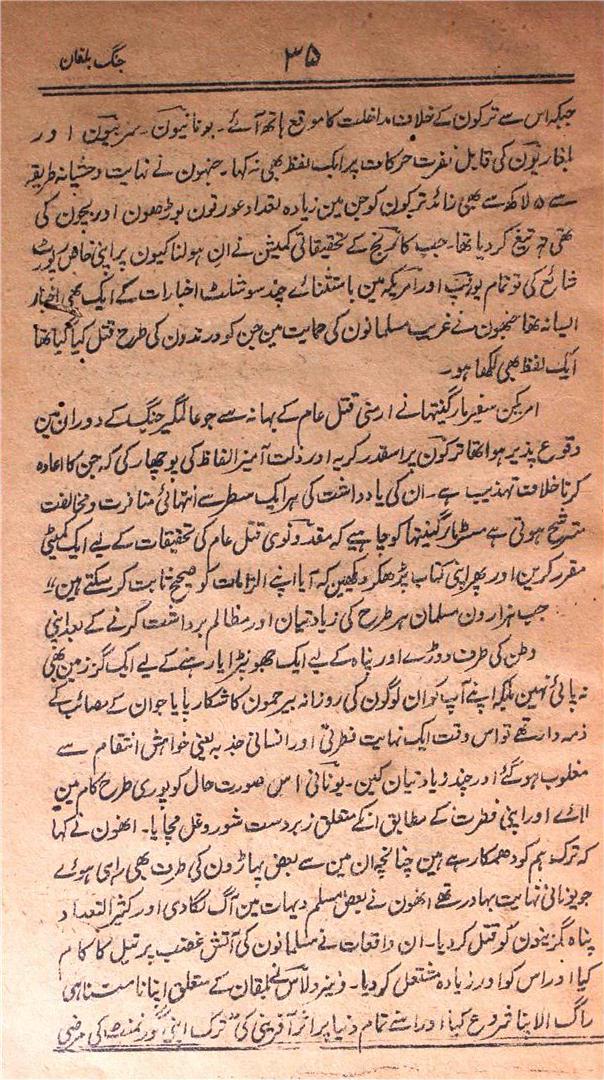 جنگ بلقان
۳۵
جبکہ اس سے ترکون کے خلاف مداخلت کا موقع ہاتھ آئے۔ یونانیون۔ سربیون اور
بلغاریون کی قابل نفرت حرکات پر ایک لفظ بھی نہ کہا۔ جنہون نے نہایت وحشیانہ طریقہ
سے ۵ لاکھ سے بھی زائد ترکون کو جن مین زیادہ تعداد عورتون بوڑھون اور بچون کی
تھی تہ تیغ کر دیا تھا۔ جب کارنیج کے تحقیقاتی کمیشن نے ان ہولناکیون پر اپنی خاص رپورٹ
شائع کی تو تمام یورپ اور امریکہ مین باستثنائے چند سوشلسٹ اخبارات کے ایک بھی اخبار
ایسا نہ تھا جنہون نے غریب مسلمانون کی حمایت مین جن کو درندون کی طرح قتل کیا گیا تھا
ایک لفظ بھی لکھا ہو۔
امریکن سفیر مارگینتھا نے ارمنی قتل عام کے بہانہ سے جو عالمگیر جنگ کے دوران مین
وقوع پذیر ہوا تھا ترکون پر اسقدر کریہ اور ذلت آمیز الفاظ کی بوچھار کی کہ جن کا اعادہ
کرنا خلاف تہذیب ہے۔ ان کی یادداشت کی ہر ایک سطر سے انتہائی منافرت و مخالفت
مترشح ہوتی ہے مسٹر مارگینتھا کو چاہیے کہ مقدونوی قتل عام کی تحقیقات کے لیے ایک کمیٹی
مقرر کرین اور پھر اپنی کتاب پڑھکر دیکھین کہ آیا اپنے الزامات کو صحیح ثابت کر سکتے ہین"
جب ہزارون مسلمان ہر طرح کی زیادتیان اور مظالم برداشت کرنے کے بعد اپنی
وطن کی طرف دوڑے اور پناہ کے لیے ایک جھونپڑا یا رہنے کے لیے ایک گز زمین بھی
نہ پائی نہین بلکہ اپنے آپ کو ان لوگون کی روزانہ بیرحمون کا شکار پایا جو ان کے مصائب کے
ذمہ دار تھے تو اس وقت ایک نہایت فطرتی اور انسانی جذبہ یعنی خواہش انتقام سے
مغلوب ہو گئے اور چند زیادتیان کین۔ یونانی اس صورت حال کو پوری طرح کام مین
لائے اور اپنی فطرت کے مطابق انکے متعلق زبردست شور و غل مچایا۔ انھون نے کہا
کہ ترک ہم کو دھمکا رہے ہین چنانچہ ان مین سے بعض پہاڑون کی طرف بھی راہی ہوئے
جو یونانی نہایت بہادر تھے انھون نے بعض مسلم دیہات مین آگ لگا دی اور کثیر التعداد
پناہ گزینون کو قتل کر دیا۔ ان واقعات نے مسلمانون کی آتش غضب پر تیل کا کام
کیا اور اس کو اور زیادہ مشتعل کر دیا۔ وینزولاس نے بلقان کے متعلق اپنا نامتناہی
راگ الاپنا شروع کیا اور اسنے تمام دنیا پر اثر آفرینی کی "ترک اپنی گورنمنٹ کی مرضی